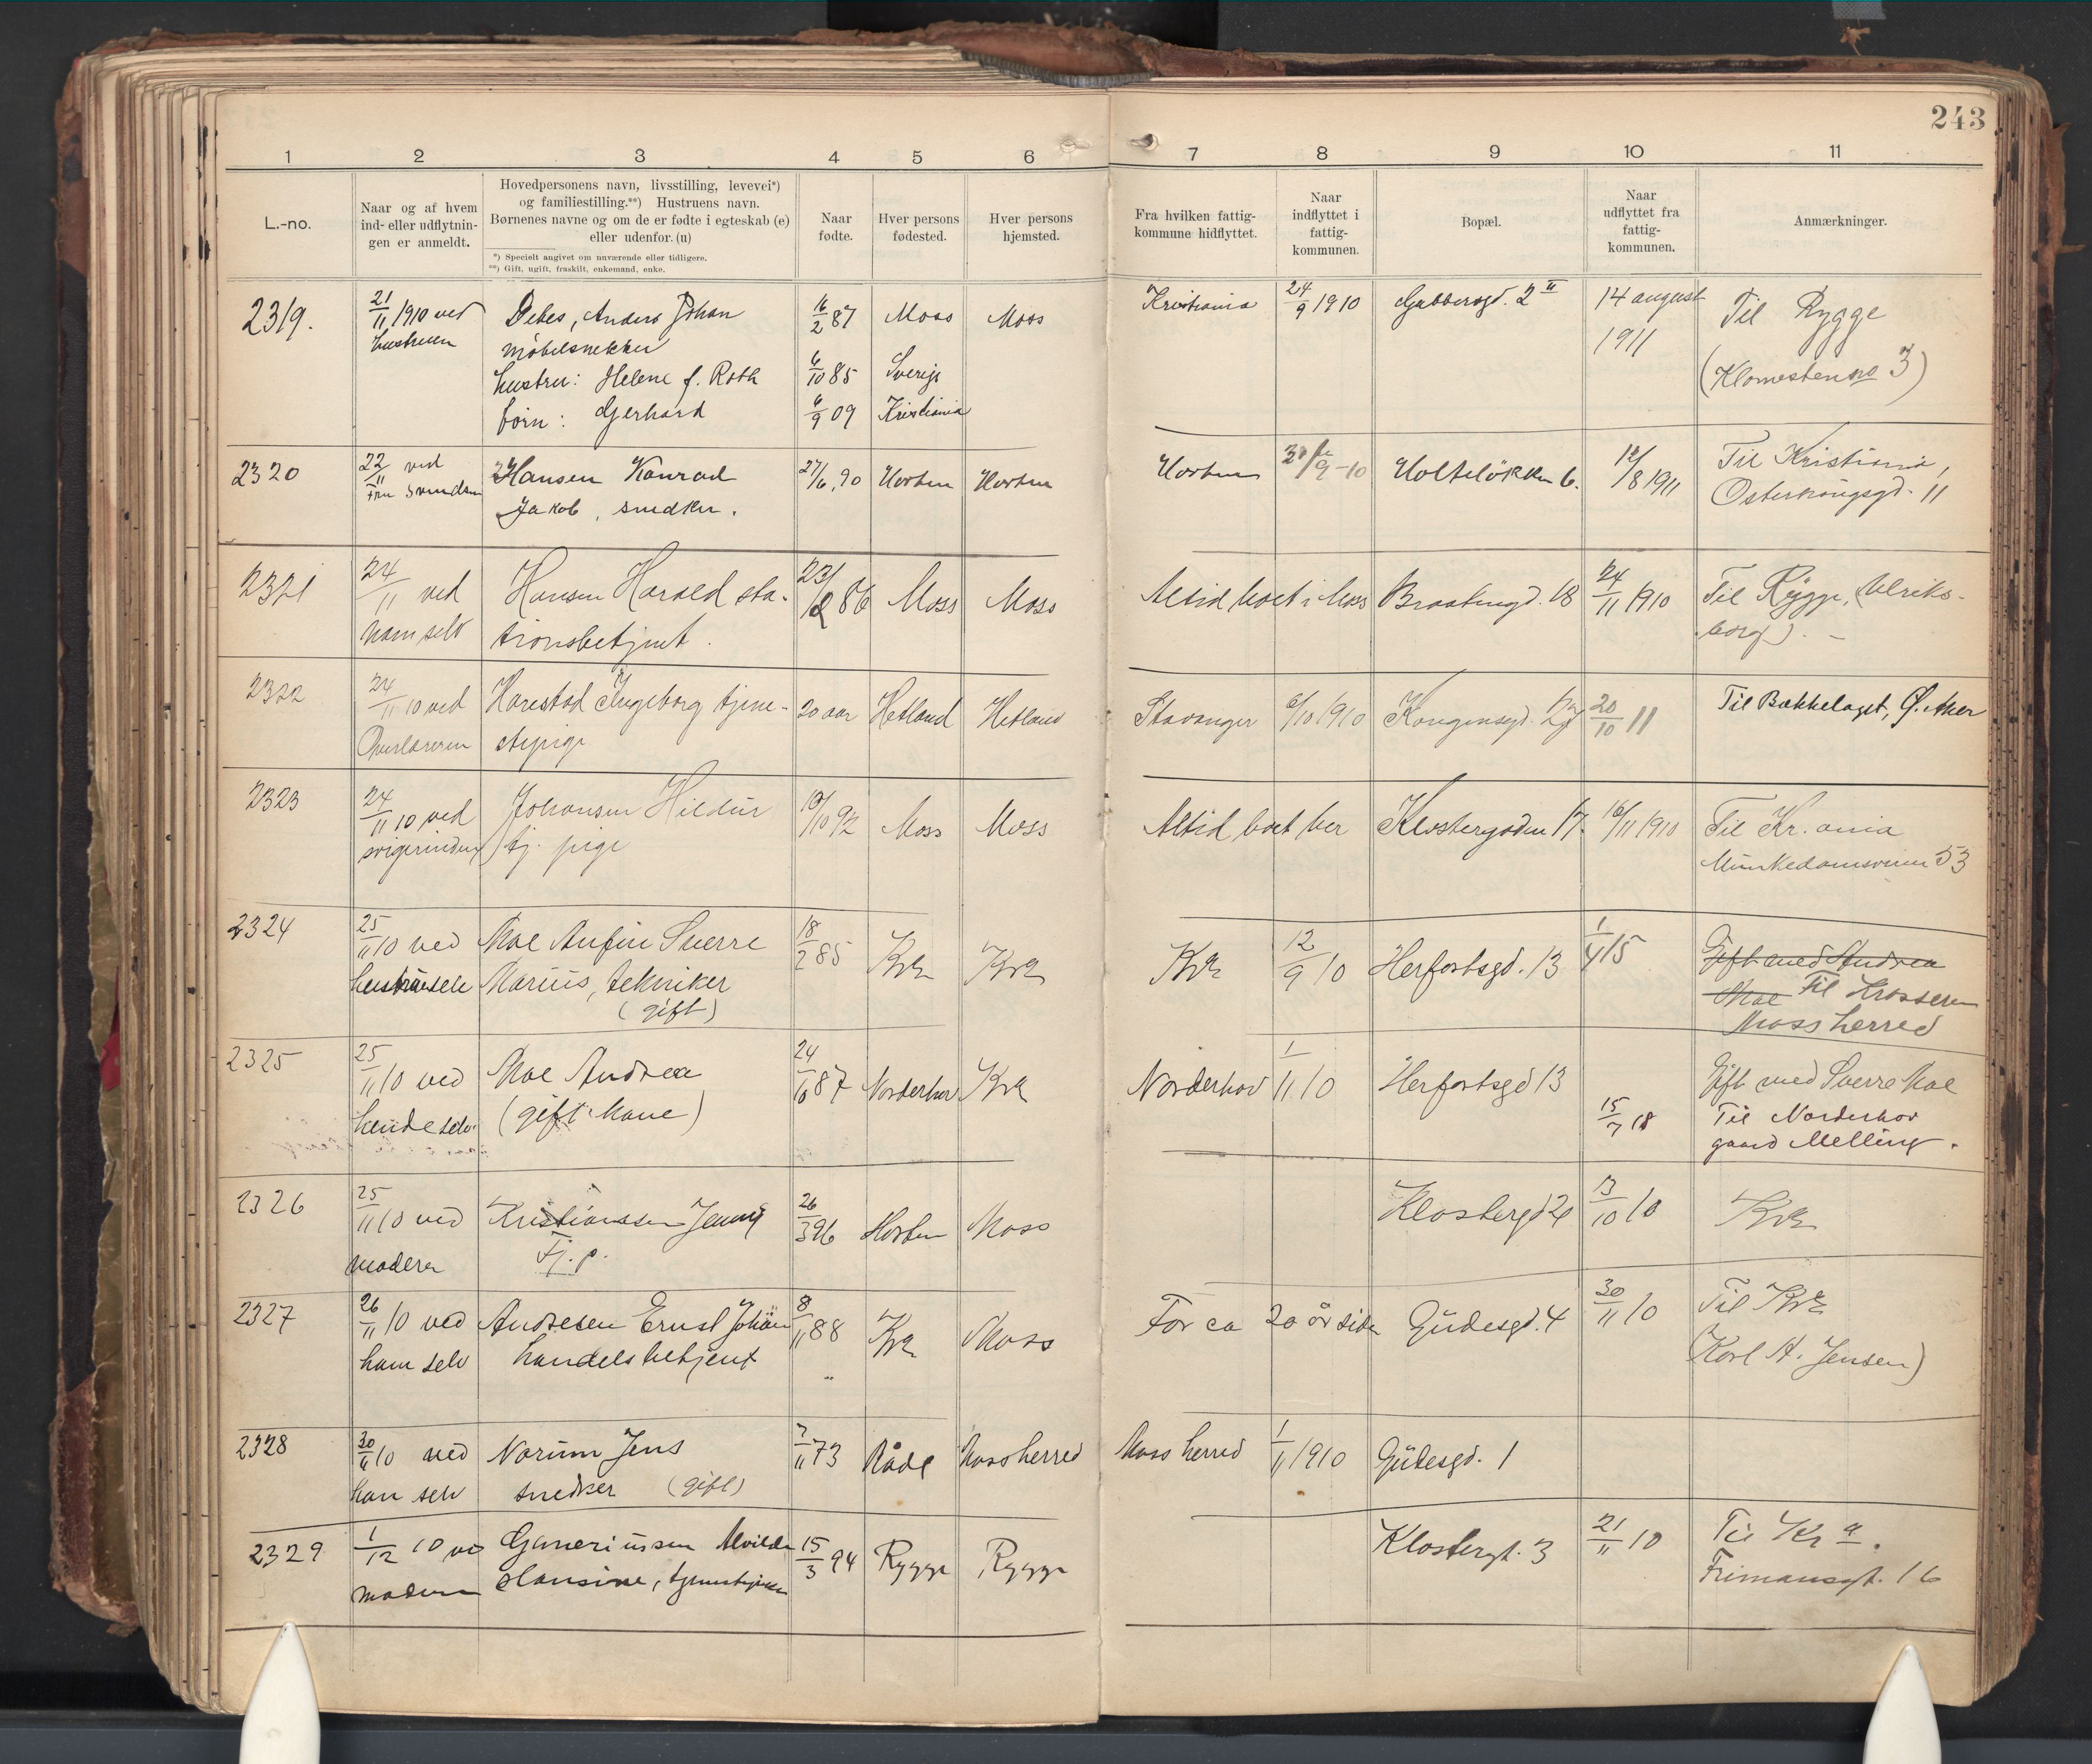 243
1 2 3 4 5 6 7 8 9 10 11
L.-no.
Naar og af hvem
ind- eller udflytnin-
gen er anmeldt.
Hovedpersonens navn, livsstilling, levevei*)
og familiestilling.**) Hustruens navn.
Børnenes navne og om de er fødte i egteskab (e)
eller udenfor. (u)
*) Specielt angivet om nuværende eller tidligere.
**) Gift, ugift, fraskilt, enkemand, enke.
Naar
fødte.
Hver persons
fødested.
Hver persons
hjemsted.
Fra hvilken fattig-
kommune hidflyttet.
Naar
indflyttet i
fattig-
kommunen.
Bopæl.
Naar
udflyttet fra
fattig-
kommunen.
Anmærkninger.
2319. 21/11 1910 ved Debes, Anders Johan 16/2 87 Moss Moss Kristiania 24/9 1910 2 II 14 august Til Rygge
hustruen møbelsnekker 1911
hustru: Helene f. Roth 6/10 85 Sverige (Klommesten no 3)
børn: Gerhard 6/9 09 Kristiania
2320 22/11 ved Hansen Konrad 27/6.90 Horten Horten Horten /9-10 Holteløkken 6. 12/8 1911 Til Kristiania,
Fru Svendsen Jakob, snedker. Østerkongsgd. 11
2321 24/11 ved Hansen Harald sta- 23/ 86 Moss Moss Altid boet i Moss Braatengd. 18 24/11 1910 Til Rygge, (Ulriks-
ham selv tionsbetjent. borg). -
2322 24/11 10 ved Harestad Ingeborg tjene- 20 aar Hetland Hetland Stavanger 6/10 1910 Kongensgd. 20/10 11 Til Bækkelaget, Ø. Aker
Overlæreren stepige
2323 24/11 10 ved Johansen Hildur 10/10 92 Moss Moss Altid boet her Klostergaden 17. 16/11 1910 Til Kr.ania
svigerinden tj. pige Munkedamsveien 53
2324 25/11 10 ved Moe Anfin Sverre 18/2 85 Kra Kra Kra 12/9 10 Herfortsgd. 13 1/4 15 Gift med Andrea
Marius, tekniker Moe Til Krosseren
(gift) Moss herred
2325 25/11 10 ved Moe Andrea 24/10 87 Norderhov Kra Norderhov 1/11 10 Herfortsgd 13 Gift med Sverre Moe
hende selv. (gift kone) 15/7 18 Til Norderhov
gaard Melling.
2326 25/11 10 ved Kristiansen Jenny 26/3 96 Horten Moss Klostergd 13/10 10 Kra
moderen Tj. p.
2327 26/11 10 ved Andresen Ernst Johan 8/11 88 Kra Moss For ca 20 år siden Gudesgd. 4 30/11 10 Til Kra
ham selv handelsbetjent (Karl A. Jensen)
2328 30/11 10 ved Norum Jens 7/11 73 Råde Moss herred Moss herred 1/11 1910 Gudesgd. 1
han selv snedker (gift)
2329 1/12 10 ved Alvilde 15/3 94 Rygge Rygge Klostergt. 3 21/11 10 Til Kr a.
moderen Hansine, tjenestepige Frimansgt. 16